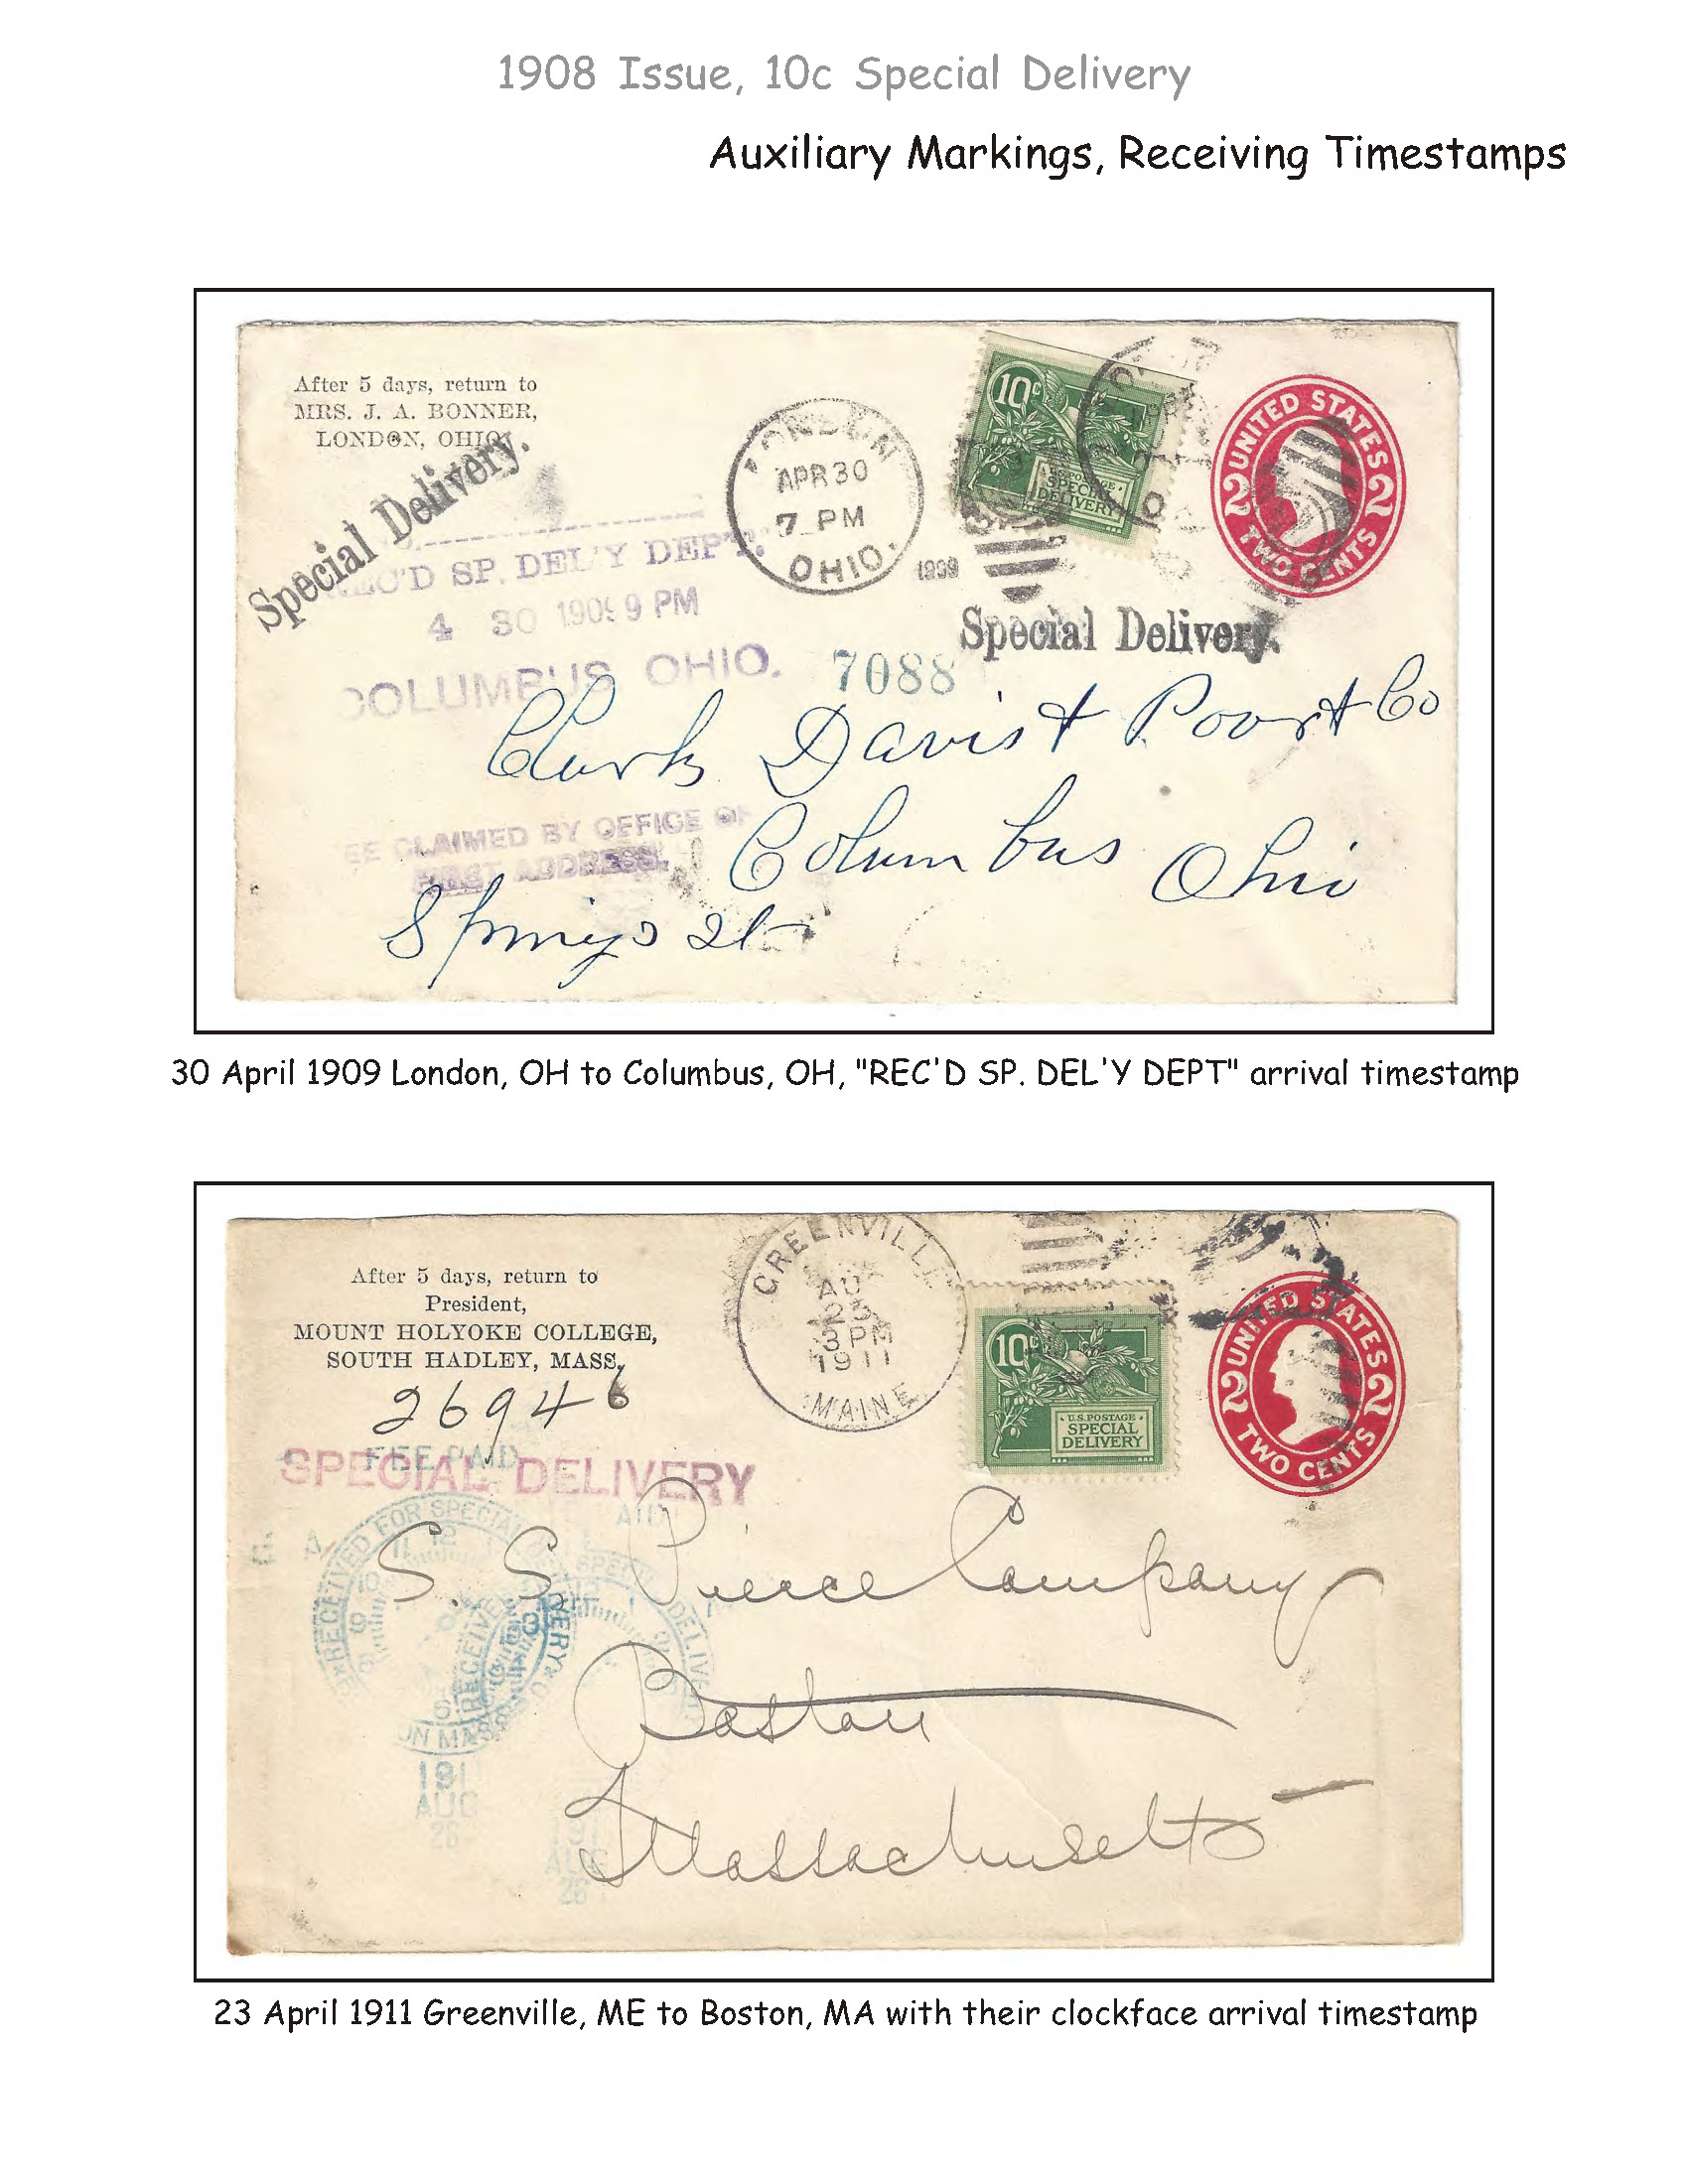 1908 Issue, 10c Special Delivery
Auxiliary Markings, Receiving Timestamps
After 5 days, return to
MRS. J. A. BONNER,
LONDON, OHIO.
Special Delivery.
LONDON
APR 30
7 PM
OHIO.
1909
10c
U.S. POSTAGE
SPECIAL
DELIVERY
UNITED STATES
2 2
TWO CENTS
REC'D SP. DEL'Y DEPT.
4 30 1909 9 PM
COLUMBUS OHIO.
7088
Special Delivery.
Clark Davis & Poor & Co
Columbus Ohio
FEE CLAIMED BY OFFICE OF
FIRST ADDRESS.
30 April 1909 London, OH to Columbus, OH, "REC'D SP. DEL'Y DEPT" arrival timestamp
After 5 days, return to
President,
MOUNT HOLYOKE COLLEGE,
SOUTH HADLEY, MASS.
26946
GREENVILLE
AU
23
3 PM
1911
MAINE
10c
U.S. POSTAGE
SPECIAL
DELIVERY
UNITED STATES
2 2
TWO CENTS
FEE PAID
SPECIAL DELIVERY
RECEIVED FOR SPECIAL
S. S. Pierce Company
Boston
Massachusetts
AUG
26
AUG
26
23 April 1911 Greenville, ME to Boston, MA with their clockface arrival timestamp